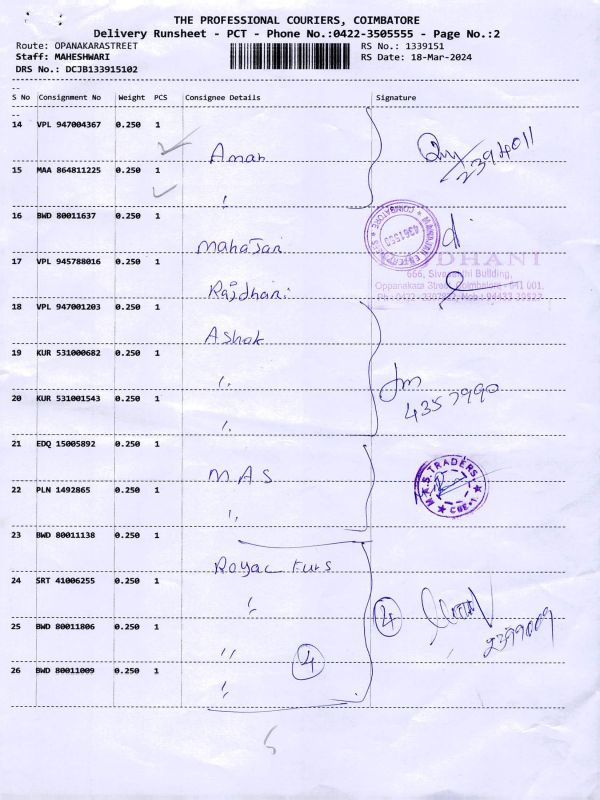 THE PROFESSIONAL COURIERS, COIMBATORE
Delivery Runsheet - PCT - Phone No.:0422-3505555 - Page No.:2
Route: OPANAKARASTREET
RS No.: 1339151
Staff: MAHESHWARI
RS Date: 18-Mar-2024
DRS No.: DCJB133915102
S No Consignment No Weight PCS Consignee Details Signature
14 VPL 947004367 0.250 1
Aman
2394011
15 MAA 864811225 0.250 1
"
16 BWD 80011637 0.250 1
Mahajan
COIMBATORE
4361550
17 VPL 945788016 0.250 1
Rajdhani
DHANI
666, Building,
Oppanakara Street, Coimbatore - 641 001.
18 VPL 947001203 0.250 1
Ashok
19 KUR 531000682 0.250 1
"
20 KUR 531001543 0.250 1
"
4357990
21 EDQ 15005892 0.250 1
M.A.S
TRADERS
CBE-1
22 PLN 1492865 0.250 1
"
23 BWD 80011138 0.250 1
Royal Furs
24 SRT 41006255 0.250 1
"
4
2399009
25 BWD 80011806 0.250 1
"
4
26 BWD 80011009 0.250 1
"